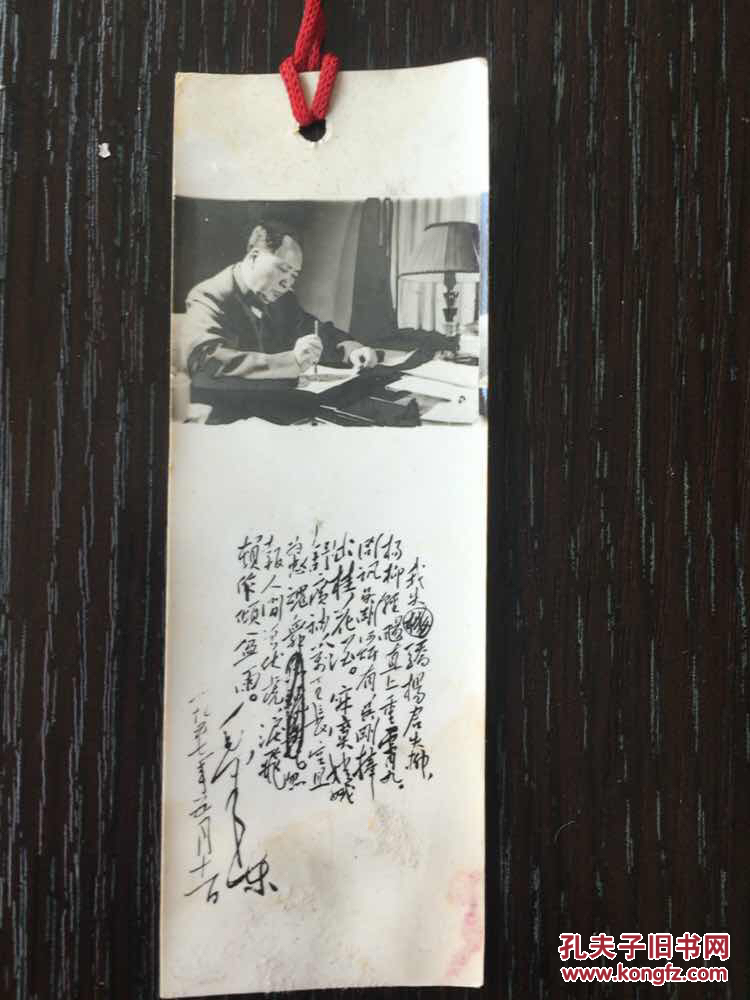 我失驕楊君失柳，
楊柳輕颺直上重霄九。
问讯吴刚何所有，吴刚捧
出桂花酒。寂寞嫦娥
舒廣袖，萬里長空且
為忠魂舞。忽
報人间曾伏虎，淚飛
頓作傾盆雨。
毛泽东
一九五七年五月十一日
孔夫子旧书网
www.kongfz.com